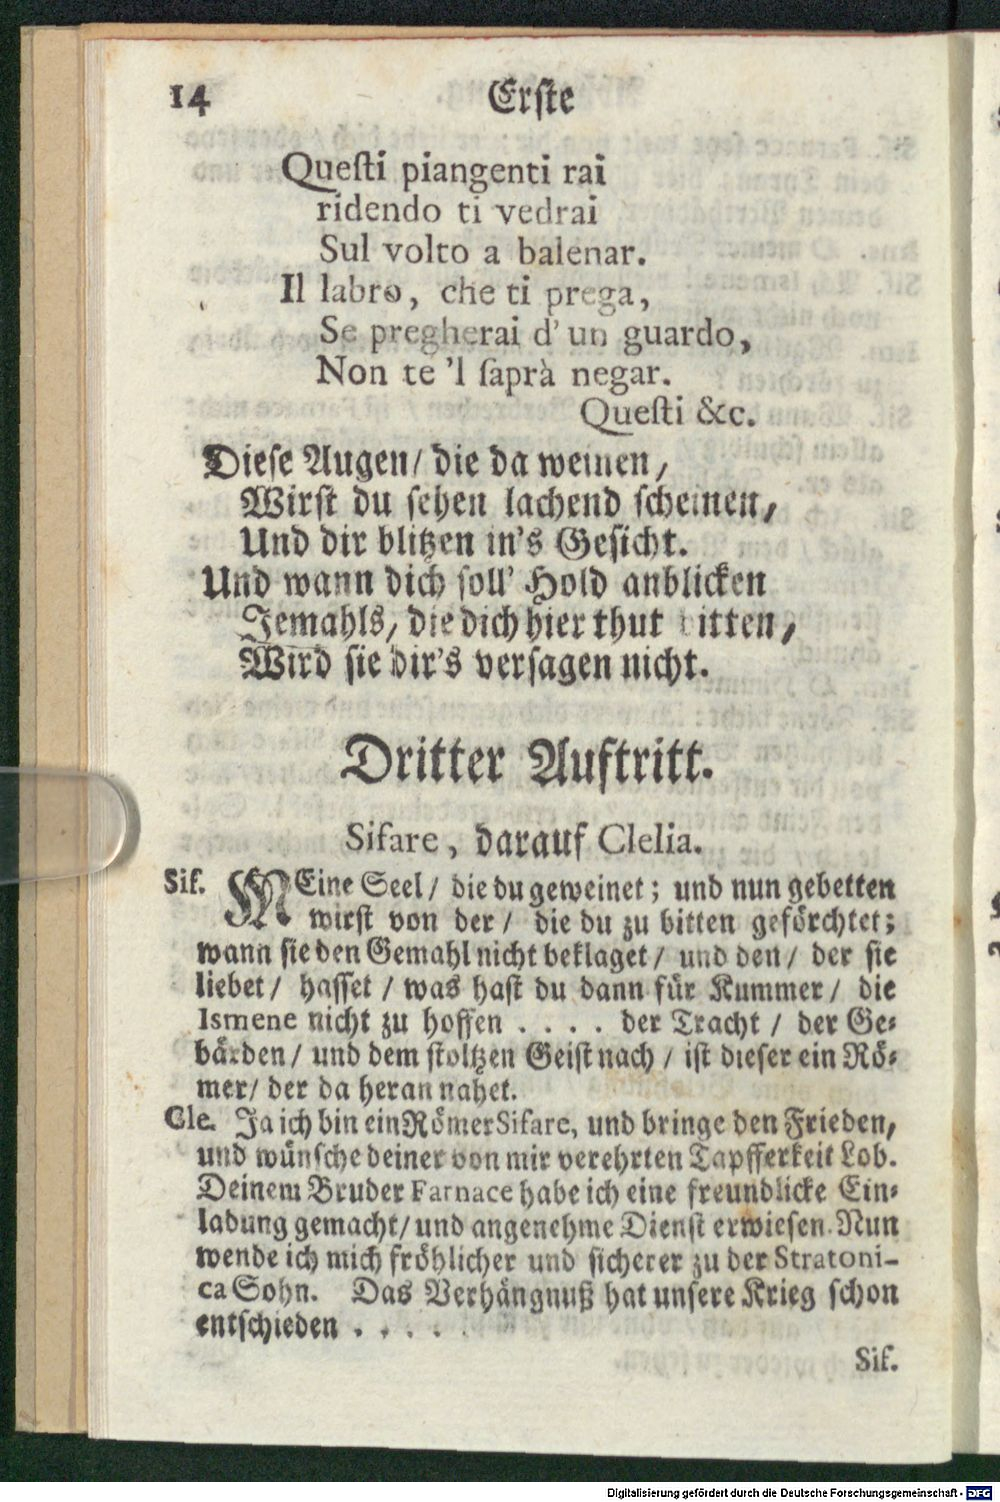 14 Erste
Questi piangenti rai
ridendo ti vedrai
Sul volto a balenar.
Il labro, che ti prega,
Se pregherai d' un guardo,
Non te 'l saprà negar.
Questi &c.
Diese Augen/ die da weinen/
Wirst du sehen lachend scheinen/
Und dir blitzen in's Gesicht.
Und wann dich soll' Hold anblicken
Jemahls/ die dich hier thut bitten/
Wird sie dir's versagen nicht.
Dritter Auftritt.
Sifare, darauf Clelia.
Sif. MEine Seel/ die du geweinet; und nun gebetten
wirst von der/ die du zu bitten geförchtet;
wann sie den Gemahl nicht beklaget/ und den/ der sie
liebet/ hasset/ was hast du dann für Kummer/ die
Ismene nicht zu hoffen . . . . der Tracht/ der Ge-
bärden/ und dem stoltzen Geist nach/ ist dieser ein Rö-
mer/ der da heran nahet.
Cle. Ja ich bin ein Römer Sifare, und bringe den Frieden/
und wünsche deiner von mir verehrten Tapfferkeit Lob.
Deinem Bruder Farnace habe ich eine freundlicke Ein-
ladung gemacht/ und angenehme Dienst erwiesen. Nun
wende ich mich fröhlicher und sicherer zu der Stratoni-
ca Sohn. Das Verhängnuß hat unsere Krieg schon
entschieden . . . . .
Sif.
Digitalisierung gefördert durch die Deutsche Forschungsgemeinschaft - DFG